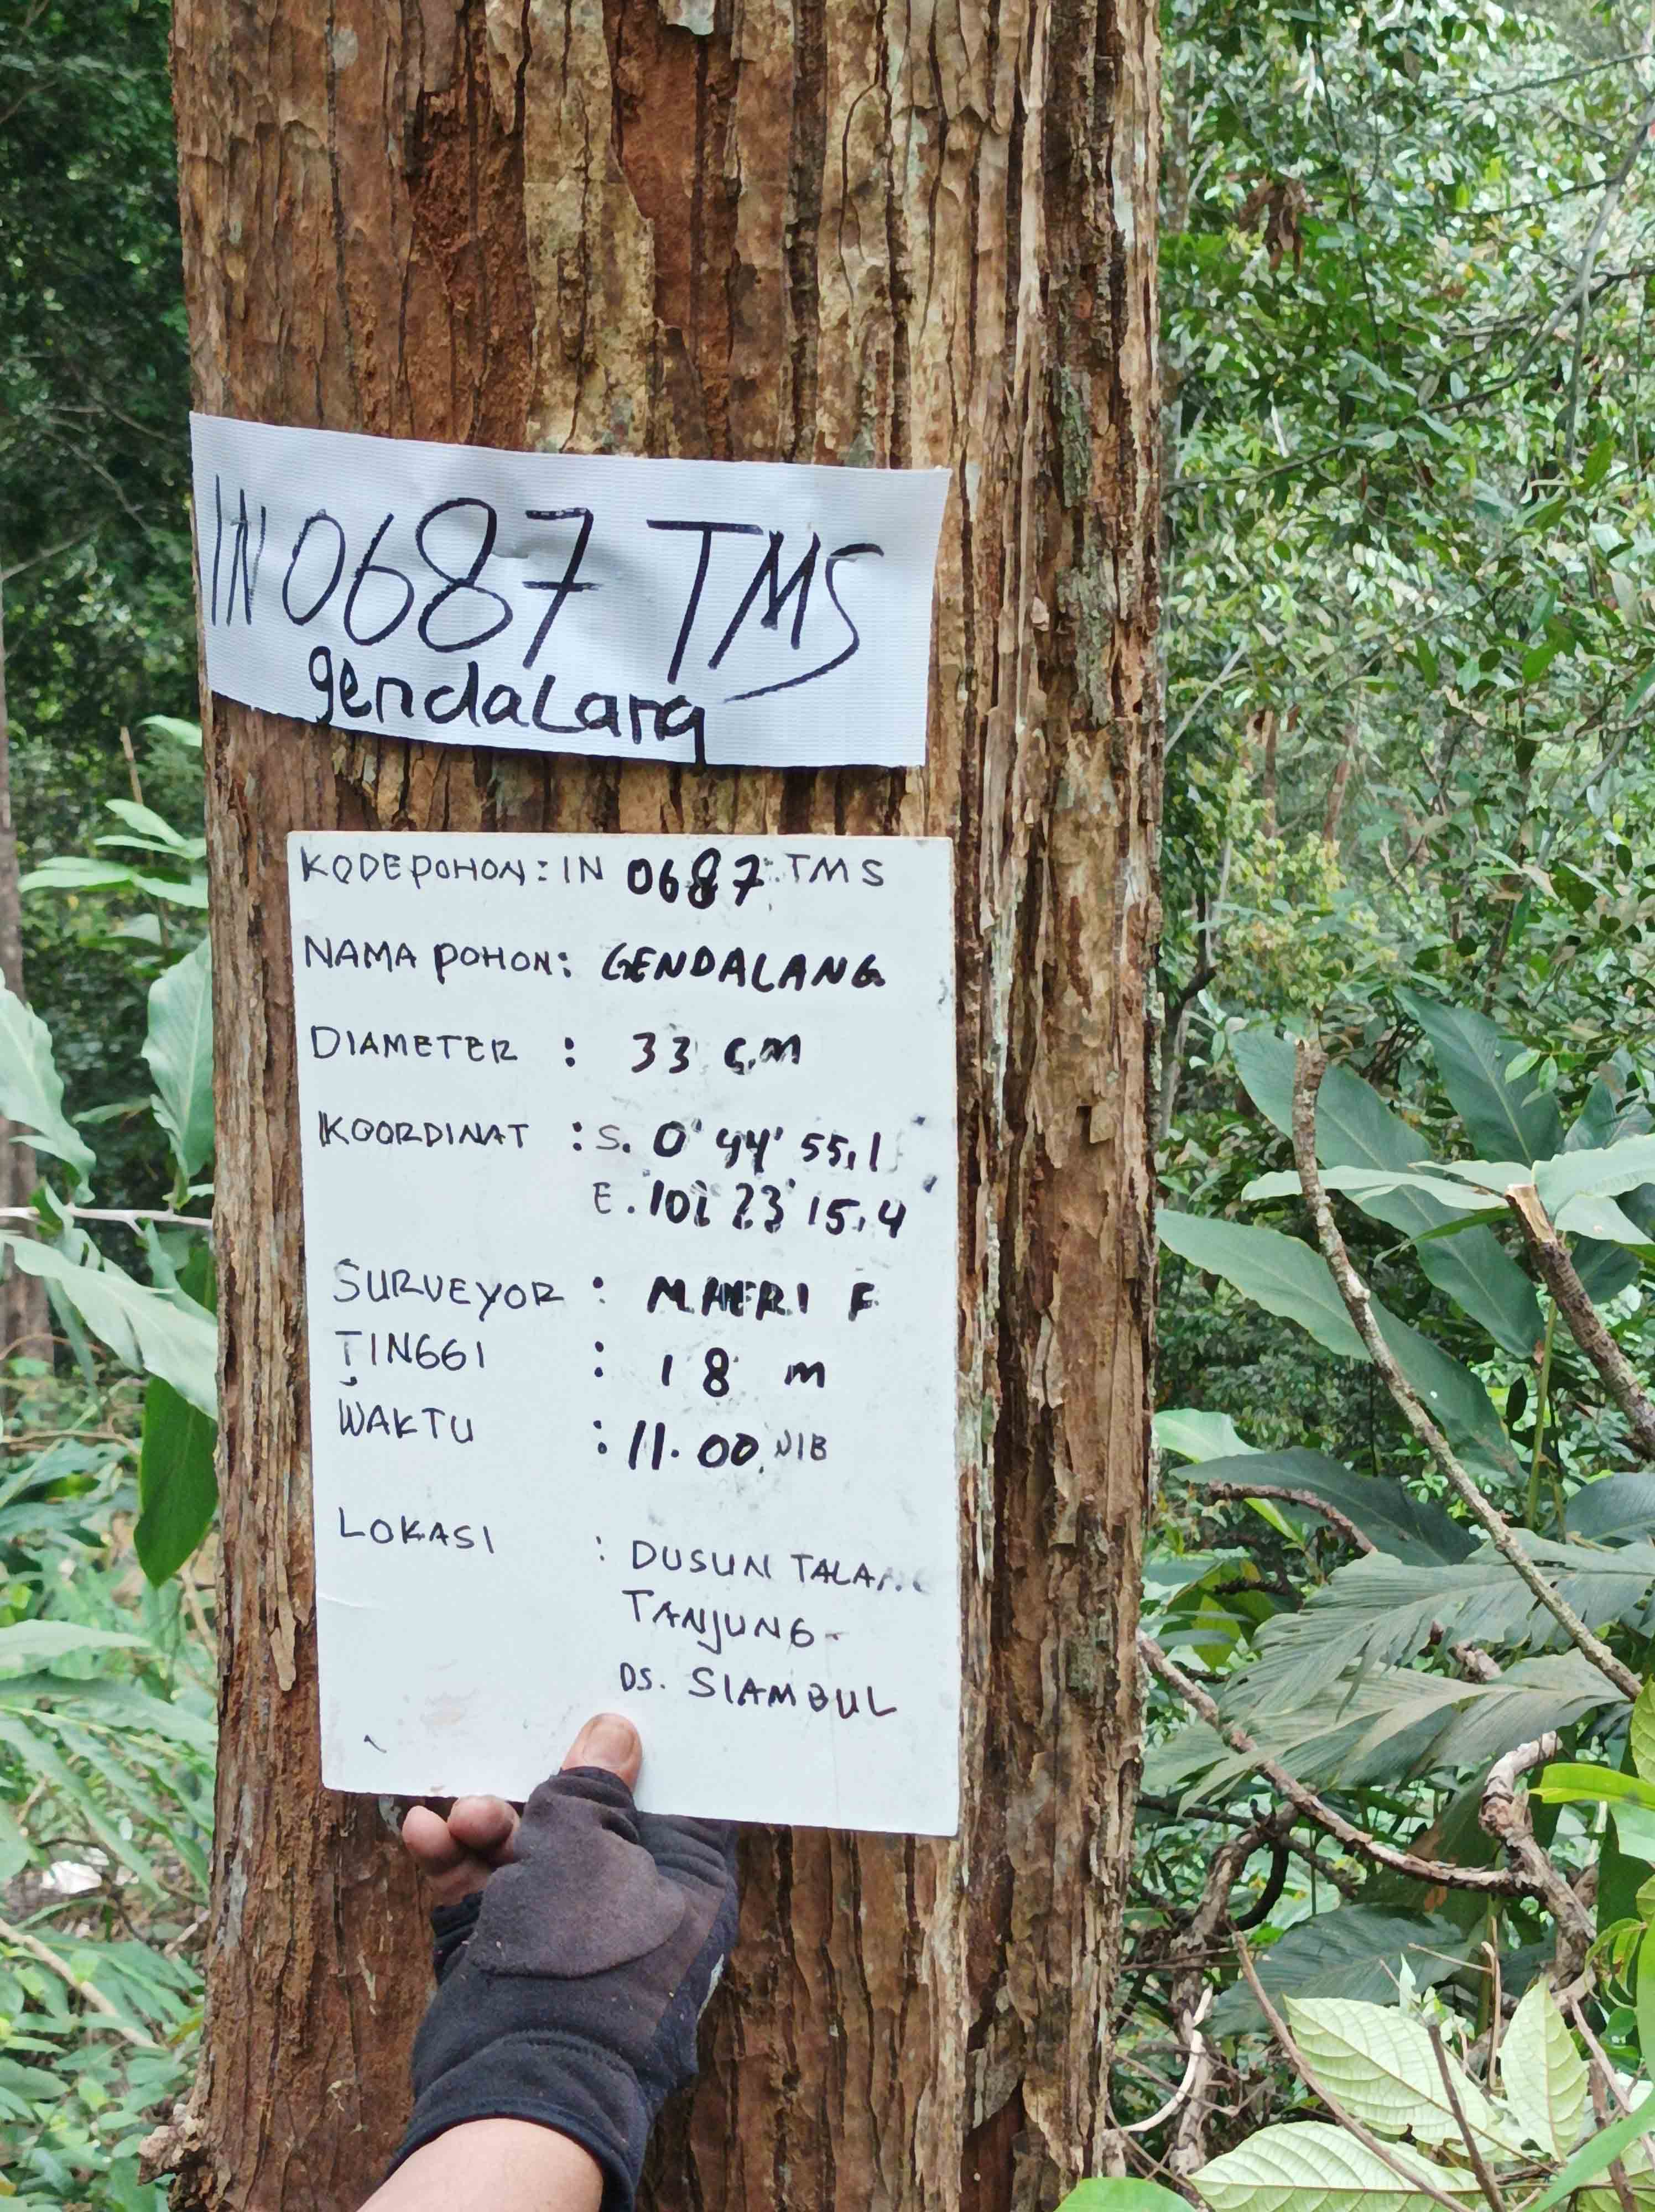 IN 0687 TMS
gendaLang
KODE POHON : IN 0687 TMS
NAMA POHON : GENDALANG
DIAMETER : 33 CM
KOORDINAT : S. 0° 44' 55,1
E. 102° 23' 15,4
SURVEYOR : M. HERI F
TINGGI : 18 m
WAKTU : 11.00 WIB
LOKASI : DUSUN TALANG
TANJUNG -
DS. SIAMBUL